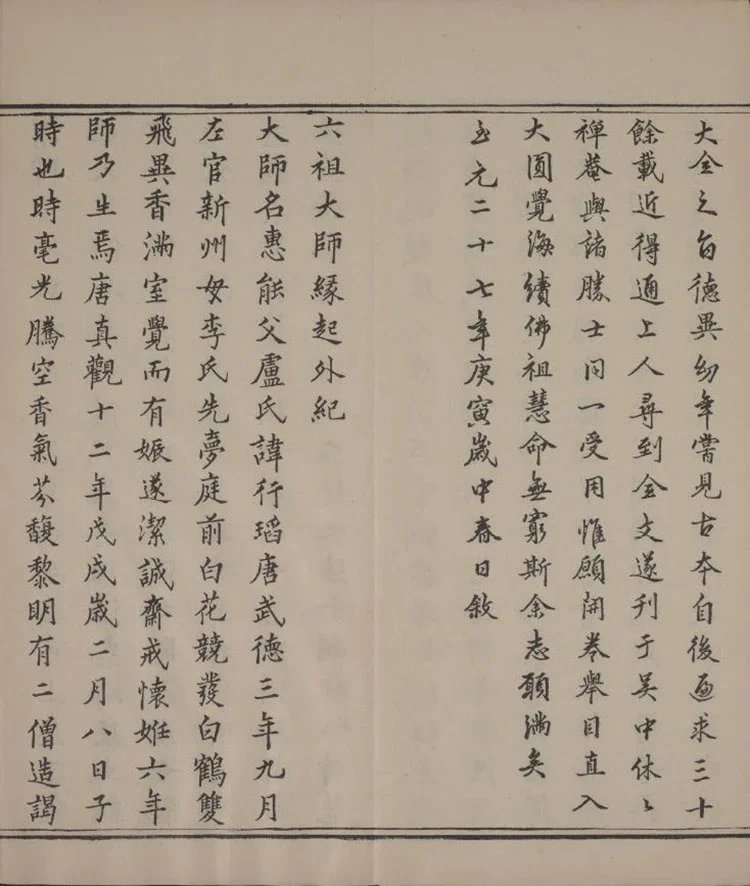 大全之旨德異幼年嘗見古本自後遍求三十
餘載近得通上人尋到全文遂刊于吳中休々
禅菴與諸勝士同一受用惟願開卷舉目直入
大圓覺海續佛祖慧命無窮斯余志願滿矣
至元二十七年庚寅歲中春日敘
六祖大師緣起外紀
大師名惠能父盧氏諱行瑫唐武德三年九月
左官新州母李氏先夢庭前白花競發白鶴雙
飛異香滿室覺而有娠遂潔誠齋戒懷妊六年
師乃生焉唐真觀十二年戊戌歲二月八日子
時也時毫光騰空香氣芬馥黎明有二僧造謁